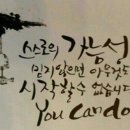 스스로의 가능성
믿지않으면 아무것도
시작할수 없습니다
You can do